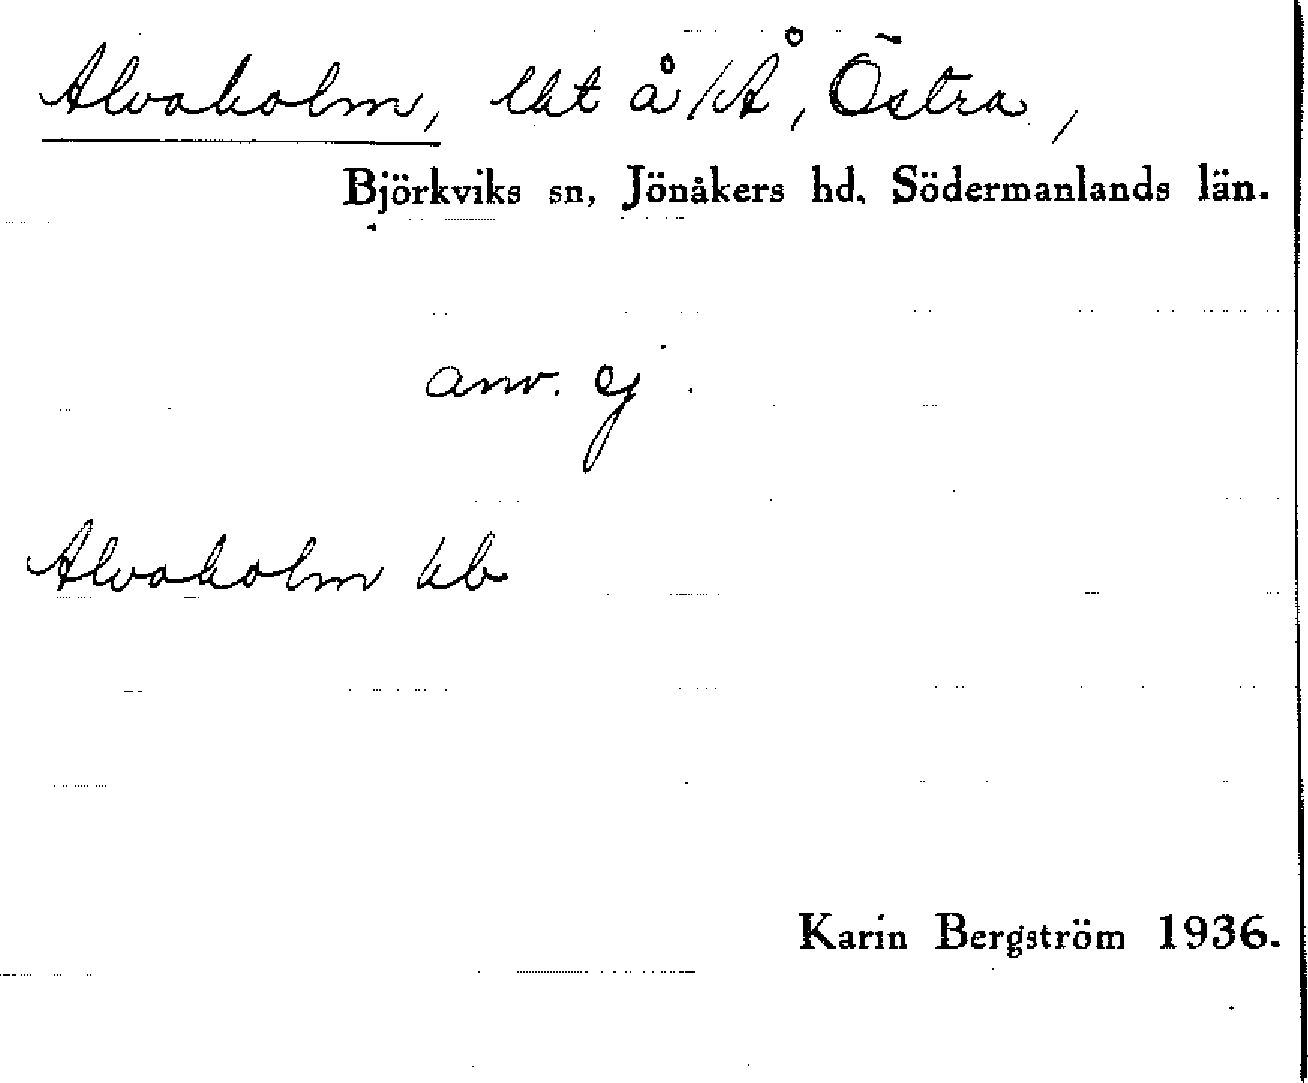 Alvaholm, lht å /kÅ, Östra,
Björkviks sn, Jönåkers hd. Södermanlands län.
anv. ej.
Alvaholm kb
Karin Bergström 1936.